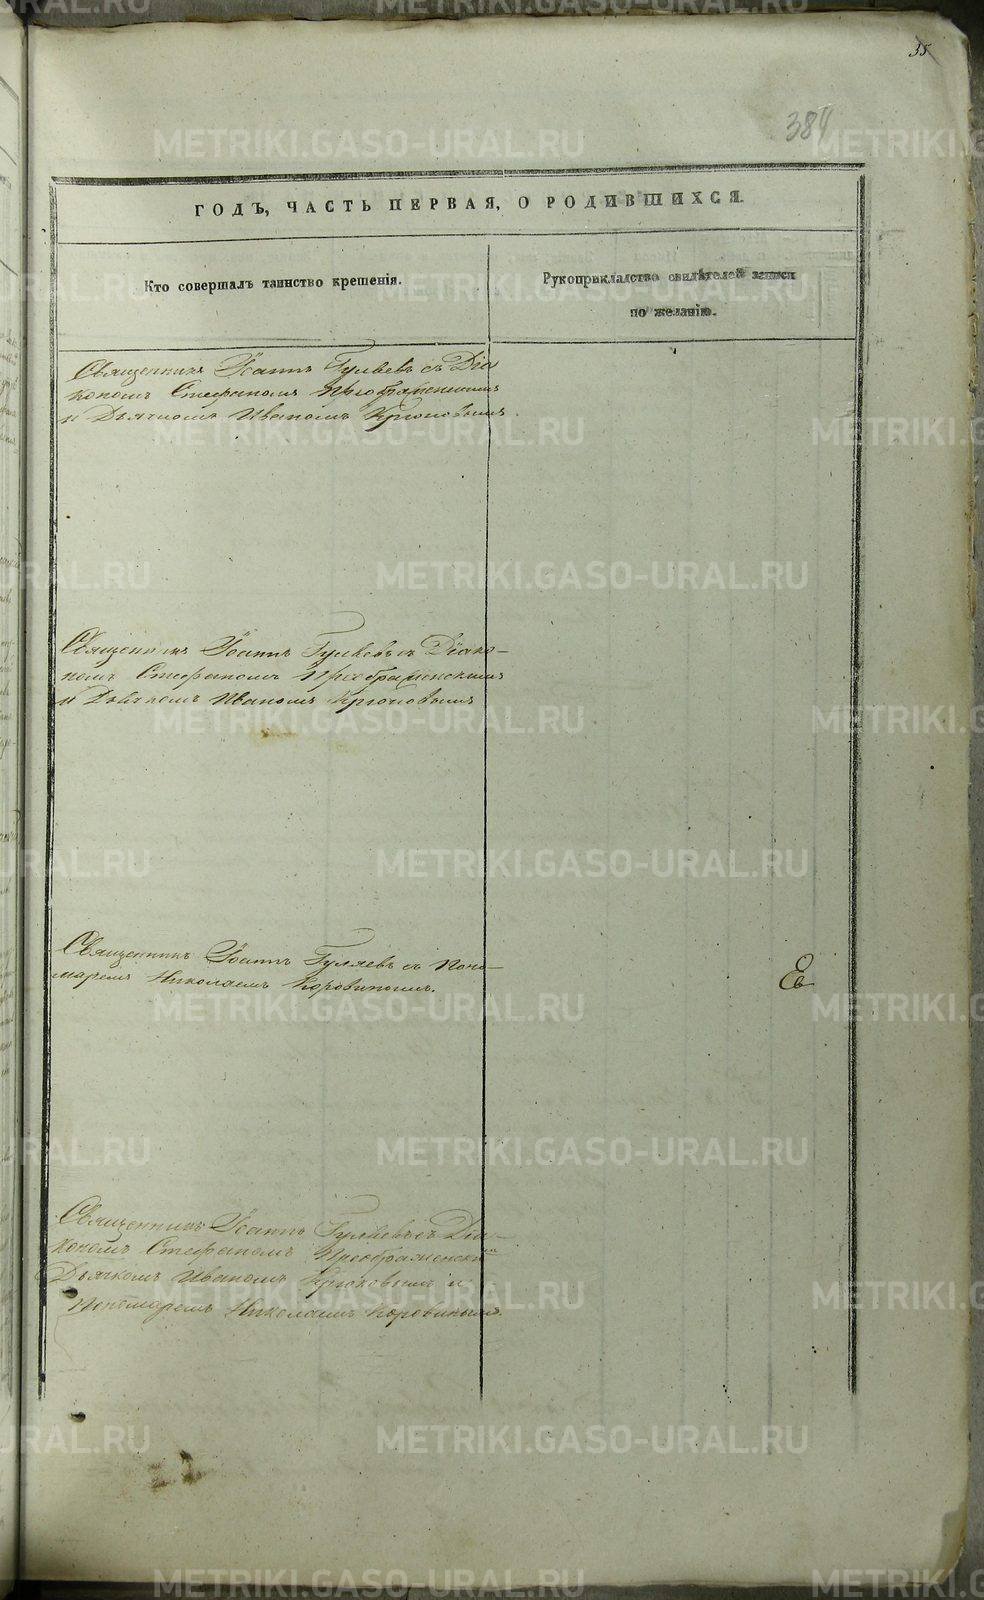 35
384
ГОДЪ, ЧАСТЬ ПЕРВАЯ, О РОДИВШИХСЯ.
Кто совершалъ таинство крещенія.
Рукоприкладство свидѣтелей записи
по желанію.
Священникъ Іоаннъ Гуляевъ съ Діа
кономъ Стефаномъ Преображенскимъ
и Дьячкомъ Иваномъ Крюковымъ.
Священникъ Іоаннъ Гуляевъ съ Діако-
номъ Стефаномъ Преображенскимъ
и Дьячкомъ Иваномъ Крюковымъ
Священникъ Іоаннъ Гуляевъ съ Поно-
маремъ Николаемъ Коровинымъ.
Священникъ Іоаннъ Гуляевъ съ Діа-
кономъ Стефаномъ Преображенским
Дьячкомъ Иваномъ Крюковымъ и
Пономаремъ Николаемъ Коровинымъ.
Ев
METRIKI.GASO-URAL.RU